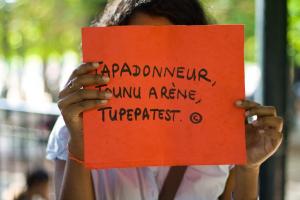 TAPADONNEUR,
TOUNU ARÈNE,
TUPEPATEST. ©